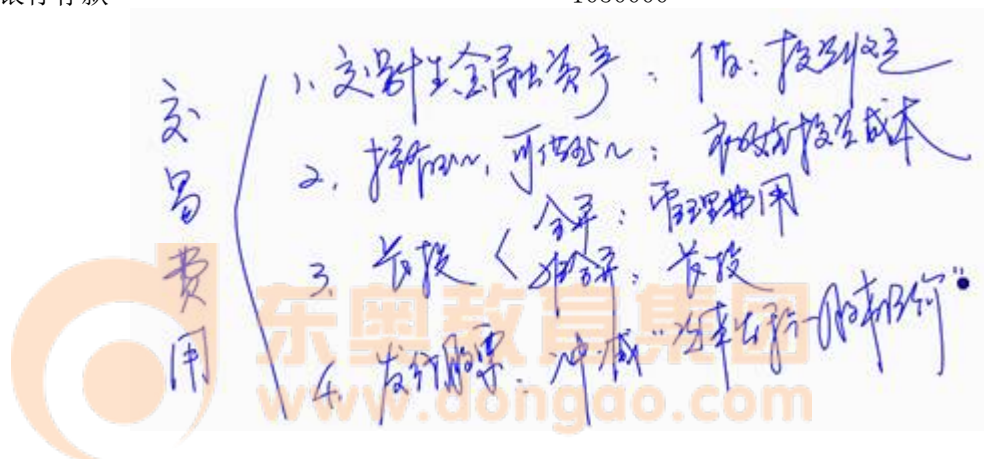 银行存款 1030000
交易费用
1. 交易性金融资产：借：投资收益
2. 持有~，可供出~：初始投资成本
3. 长投 < 合并：管理费用
非合并：长投
4. 发行股票：冲减“资本公积—股本溢价”
东奥教育集团
www.dongao.com